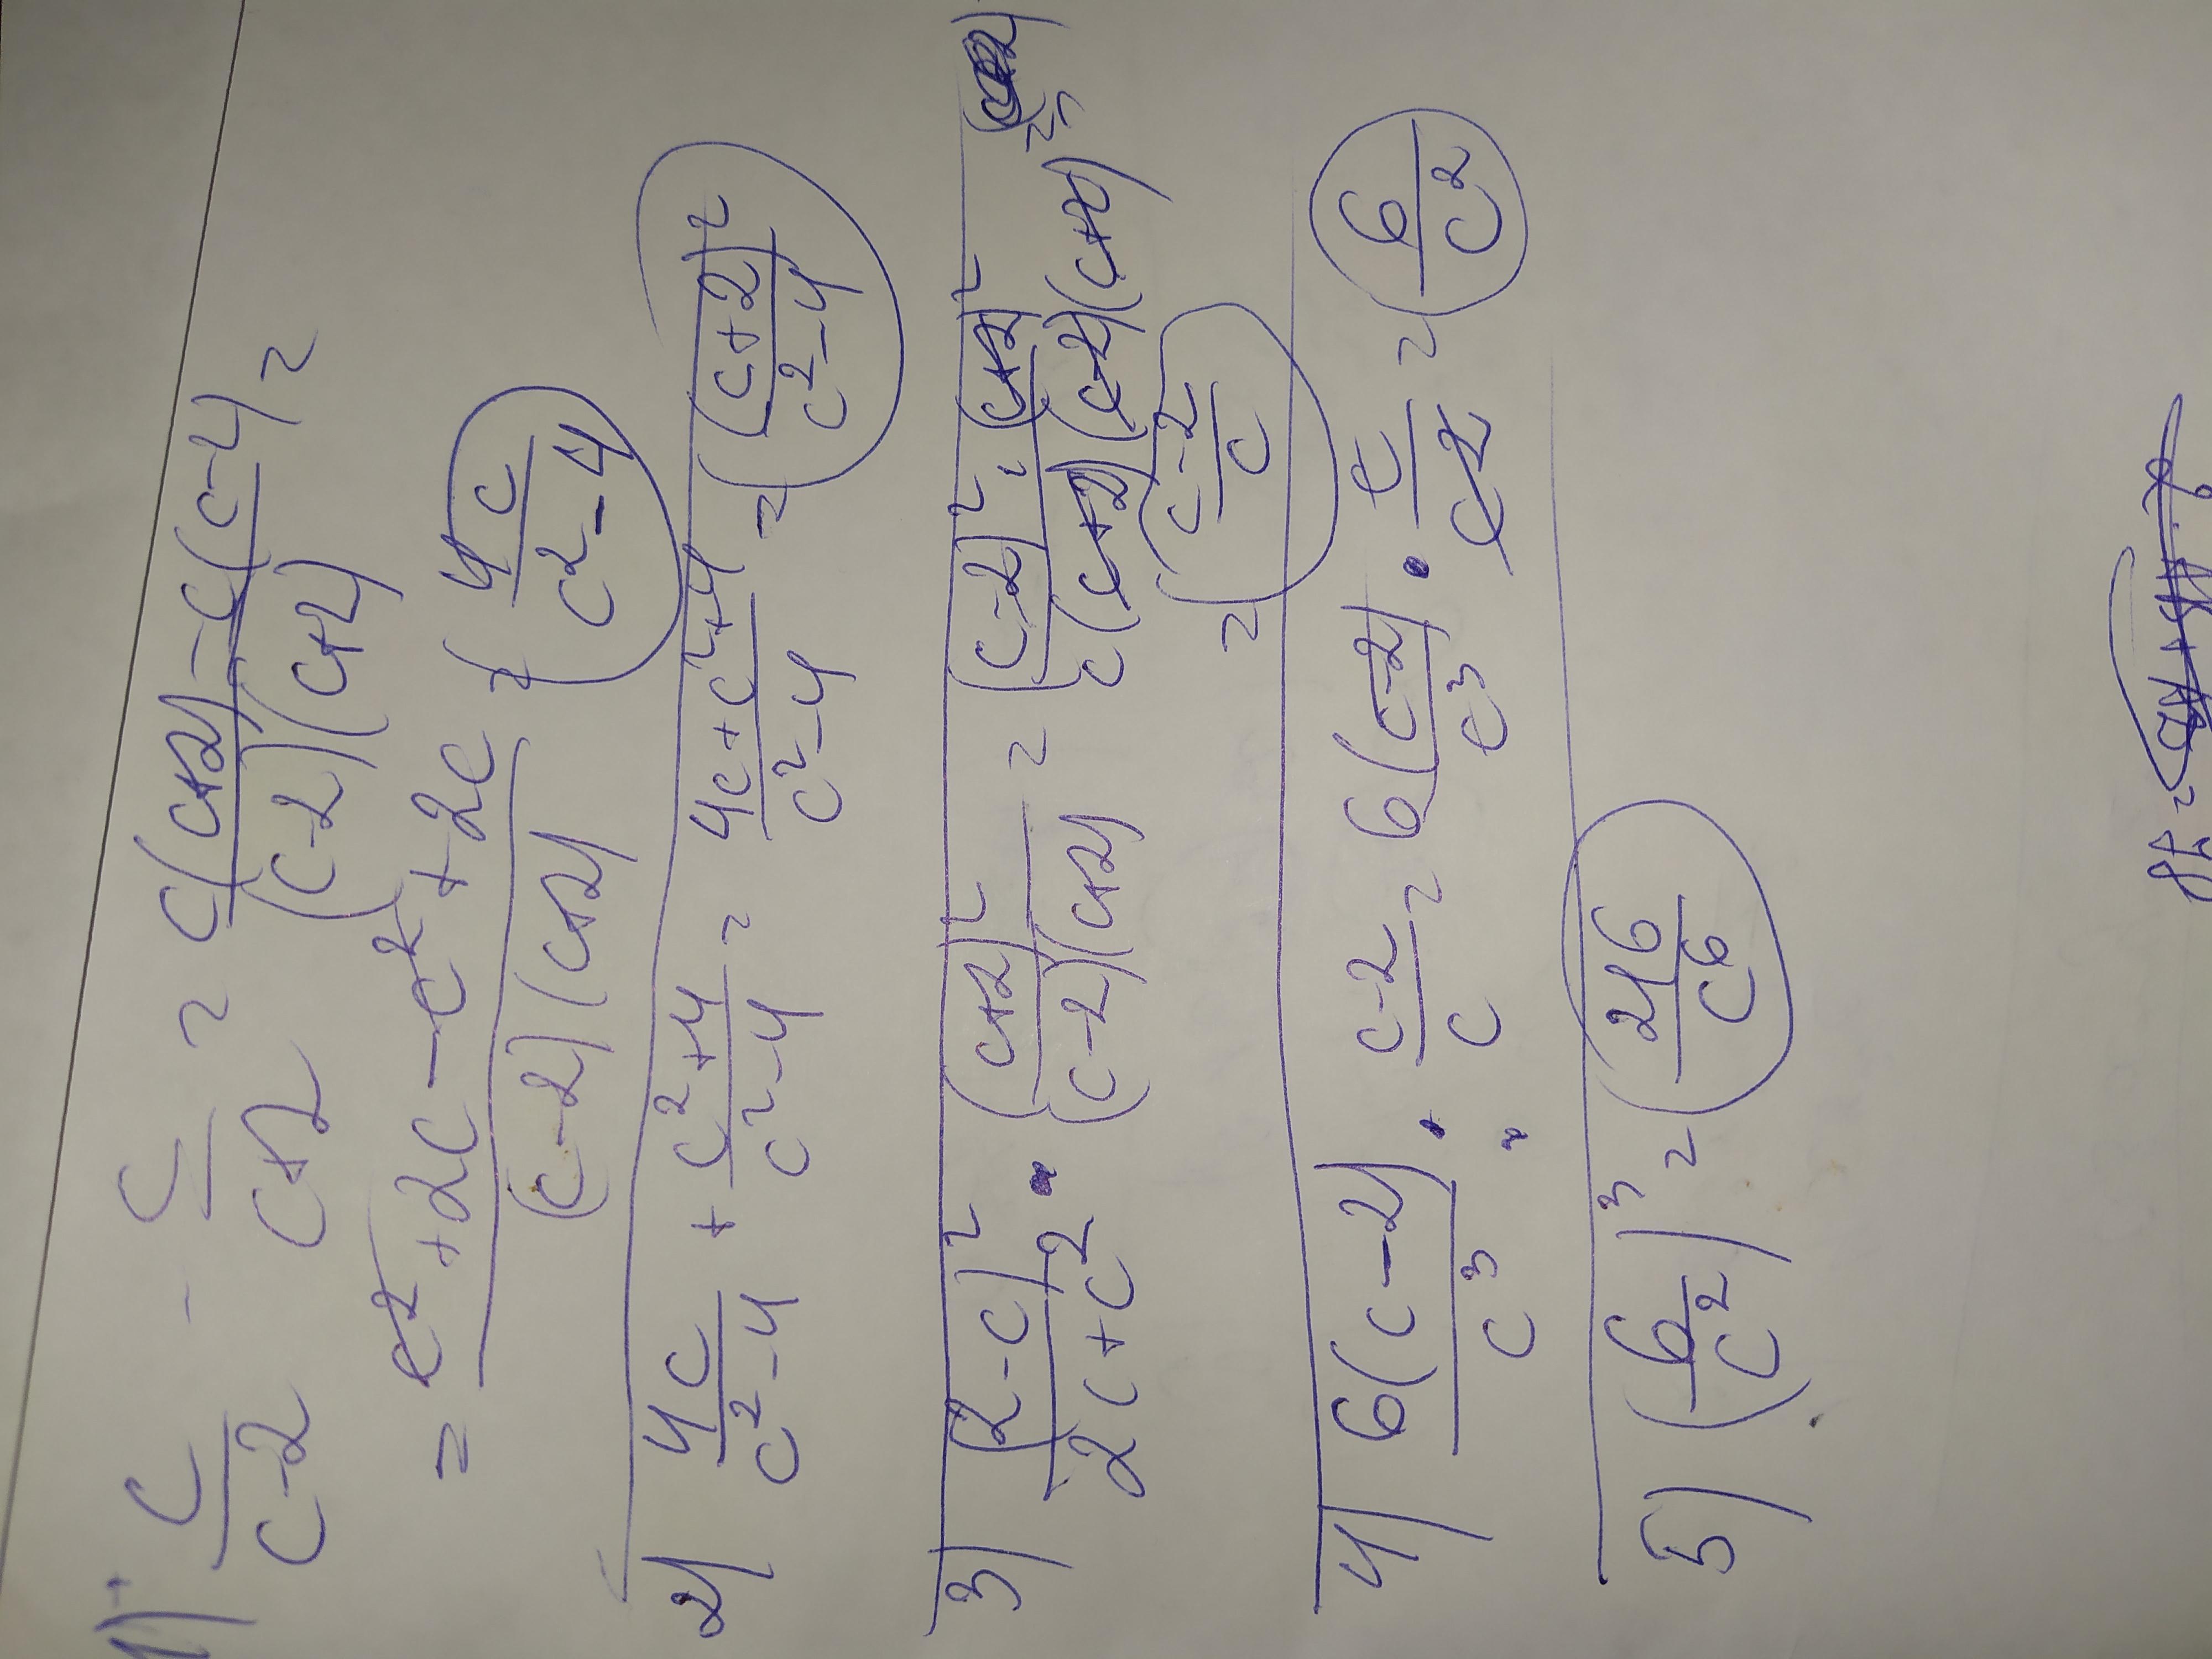 1) c/(c-2) - c/(c+2) = (c(c+2) - c(c-2))/((c-2)(c+2)) =
= (c² + 2c - c² + 2c)/((c-2)(c+2)) = 4c/(c²-4)
2) 4c/(c²-4) + (c²+4)/(c²-4) = (4c+c²+4)/(c²-4) = (c+2)²/(c²-4)
3) (2-c)²/(2c+c²) · (c+2)²/((c-2)(c+2)) = (c-2)²·(c+2)²/(c(c+2)(c-2)(c+2)) =
= (c-2)/c
4) 6(c-2)/c³ : (c-2)/c = 6(c-2)/c³ · c/(c-2) = 6/c²
5) (6/c²)³ = 216/c⁶